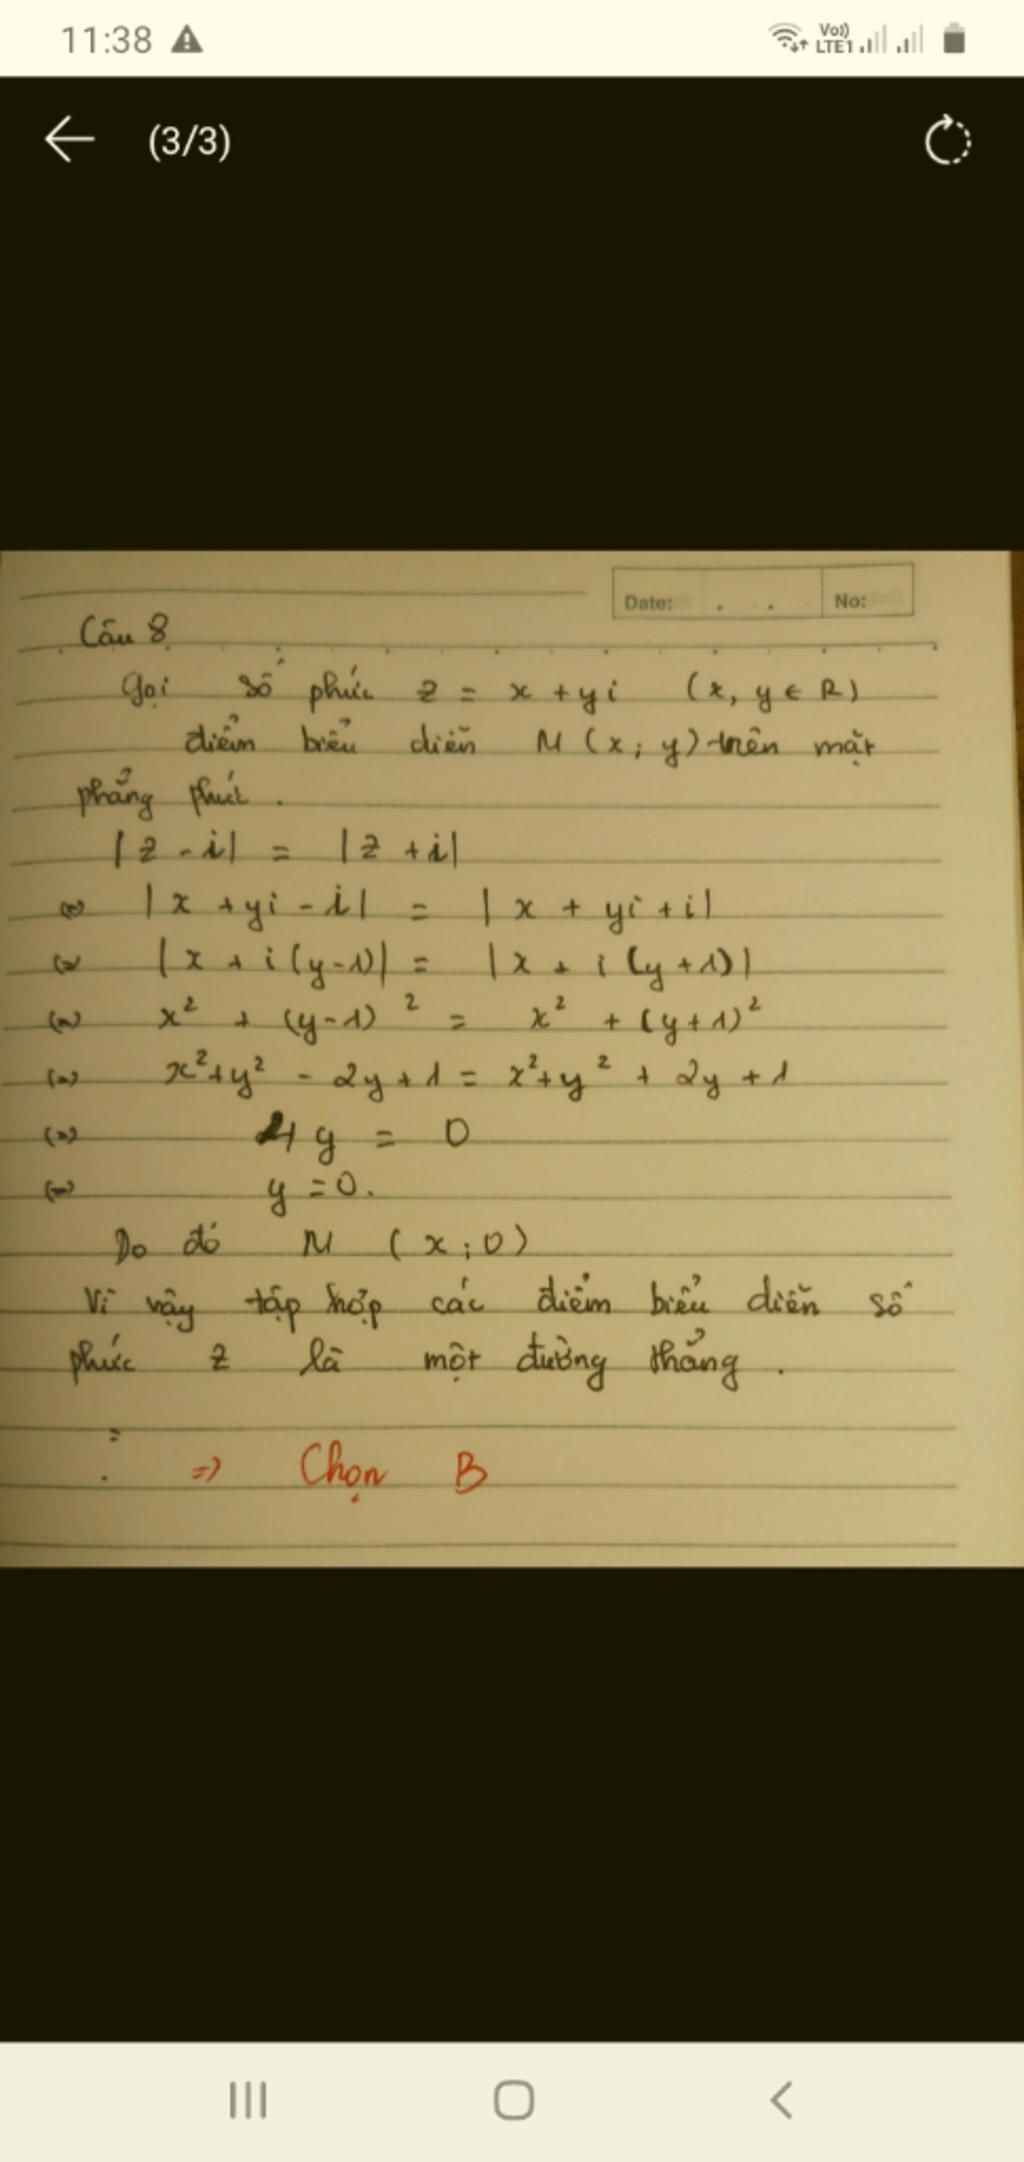 11:38
Vo))
LTE1
(3/3)
Date: . . No:
Câu 8
Gọi số phức z = x + yi (x, y ∈ R)
điểm biểu diễn M (x; y) trên mặt
phẳng phức.
|z - i| = |z + i|
⇔ |x + yi - i| = |x + yi + i|
⇔ |x + i(y-1)| = |x + i(y+1)|
⇔ x² + (y-1)² = x² + (y+1)²
⇔ x²+y² - 2y + 1 = x²+y² + 2y + 1
⇔ 4y = 0
⇔ y = 0.
Do đó M (x; 0)
Vì vậy tập hợp các điểm biểu diễn số
phức z là một đường thẳng.
⇒ Chọn B